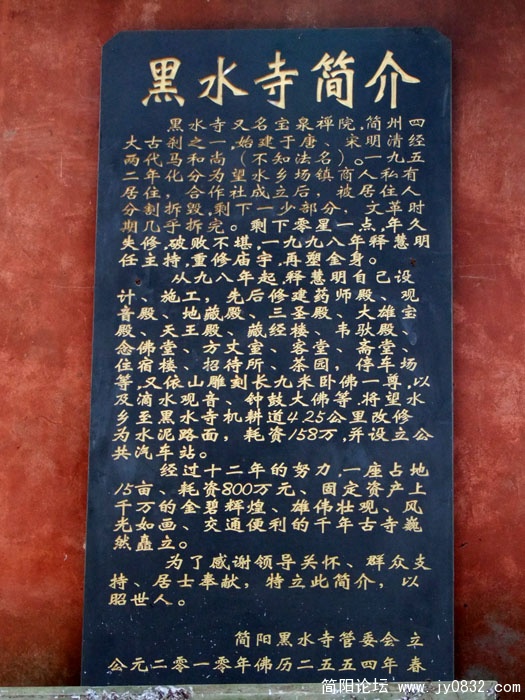 黑水寺简介
黑水寺又名宝泉禅院,简州四
大古刹之一,始建于唐、宋明清经
两代马和尚(不知法名)。一九五
二年化分为望水乡场镇商人私有
居住,合作社成立后,被居住人
分割拆毁,剩下一少部分,文革时
期几乎拆完。剩下零星一点,年久
失修,破败不堪,一九九八年释慧明
任主持,重修庙宇,再塑金身。
从九八年起,释慧明自己设
计、施工,先后修建药师殿、观
音殿、地藏殿、三圣殿、大雄宝
殿、天王殿、藏经楼、韦驮殿、
念佛堂、方丈室、客堂、斋堂、
住宿楼、招待所、茶园,停车场
等,又依山雕刻长九米卧佛一尊,以
及滴水观音、钟鼓大佛等,将望水
乡至黑水寺机耕道4.25公里改修
为水泥路面,耗资158万,并设立公
共汽车站。
经过十二年的努力,一座占地
15亩、耗资800万元、固定资产上
千万的金碧辉煌、雄伟壮观、风
光如画、交通便利的千年古寺巍
然矗立。
为了感谢领导关怀、群众支
持、居士奉献,特立此简介,以
昭世人。
简阳黑水寺管委会立
公元二零一零年佛历二五五四年春
简阳论坛 www.jy0832.com